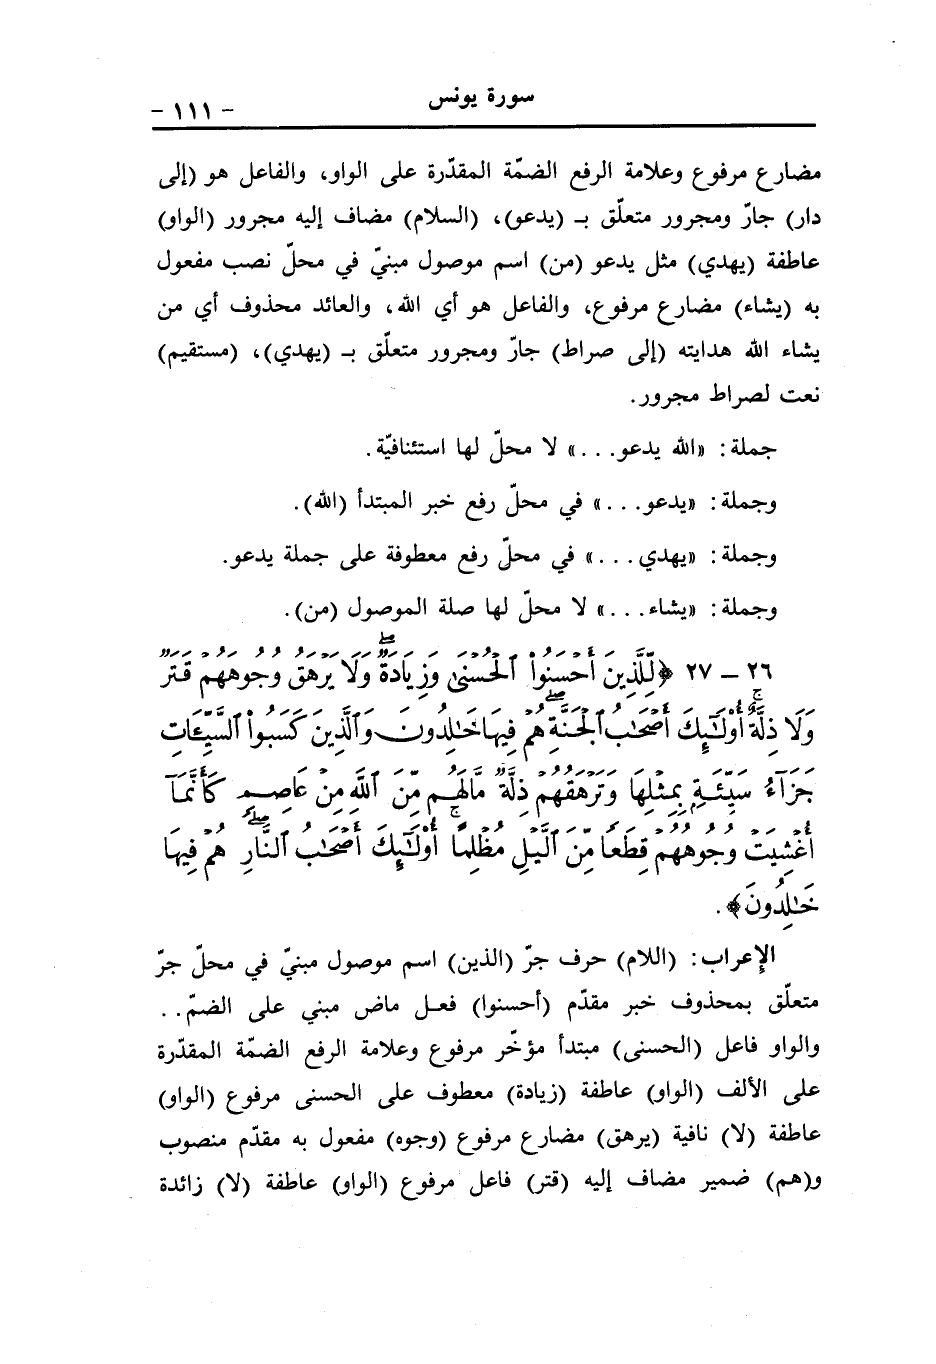 سورة يونس
- ١١١ -
مضارع مرفوع وعلامة الرفع الضمّة المقدّرة على الواو، والفاعل هو (إلى
دار) جارّ ومجرور متعلّق بـ (يدعو)، (السلام) مضاف إليه مجرور (الواو)
عاطفة (يهدي) مثل يدعو (من) اسم موصول مبنيّ في محلّ نصب مفعول
به (يشاء) مضارع مرفوع، والفاعل هو أي الله، والعائد محذوف أي من
يشاء الله هدايته (إلى صراط) جارّ ومجرور متعلّق بـ (يهدي)، (مستقيم)
نعت لصراط مجرور.
جملة: «الله يدعو...» لا محلّ لها استئنافيّة.
وجملة: «يدعو...» في محلّ رفع خبر المبتدأ (الله).
وجملة: «يهدي...» في محلّ رفع معطوفة على جملة يدعو.
وجملة: «يشاء...» لا محلّ لها صلة الموصول (من).
٢٦ - ٢٧ ﴿لِّلَّذِينَ أَحْسَنُوا۟ ٱلْحُسْنَىٰ وَزِيَادَةٌ ۖ وَلَا يَرْهَقُ وُجُوهَهُمْ قَتَرٌ
وَلَا ذِلَّةٌ ۚ أُو۟لَٰٓئِكَ أَصْحَٰبُ ٱلْجَنَّةِ ۖ هُمْ فِيهَا خَٰلِدُونَ وَٱلَّذِينَ كَسَبُوا۟ ٱلسَّيِّـَٔاتِ
جَزَآءُ سَيِّئَةٍۭ بِمِثْلِهَا وَتَرْهَقُهُمْ ذِلَّةٌ مَّا لَهُم مِّنَ ٱللَّهِ مِنْ عَاصِمٍ كَأَنَّمَآ
أُغْشِيَتْ وُجُوهُهُمْ قِطَعًا مِّنَ ٱلَّيْلِ مُظْلِمًا ۚ أُو۟لَٰٓئِكَ أَصْحَٰبُ ٱلنَّارِ ۖ هُمْ فِيهَا
خَٰلِدُونَ﴾.
الإعراب: (اللام) حرف جرّ (الذين) اسم موصول مبنيّ في محلّ جرّ
متعلّق بمحذوف خبر مقدّم (أحسنوا) فعل ماض مبني على الضمّ..
والواو فاعل (الحسنى) مبتدأ مؤخّر مرفوع وعلامة الرفع الضمّة المقدّرة
على الألف (الواو) عاطفة (زيادة) معطوف على الحسنى مرفوع (الواو)
عاطفة (لا) نافية (يرهق) مضارع مرفوع (وجوه) مفعول به مقدّم منصوب
و(هم) ضمير مضاف إليه (قتر) فاعل مرفوع (الواو) عاطفة (لا) زائدة